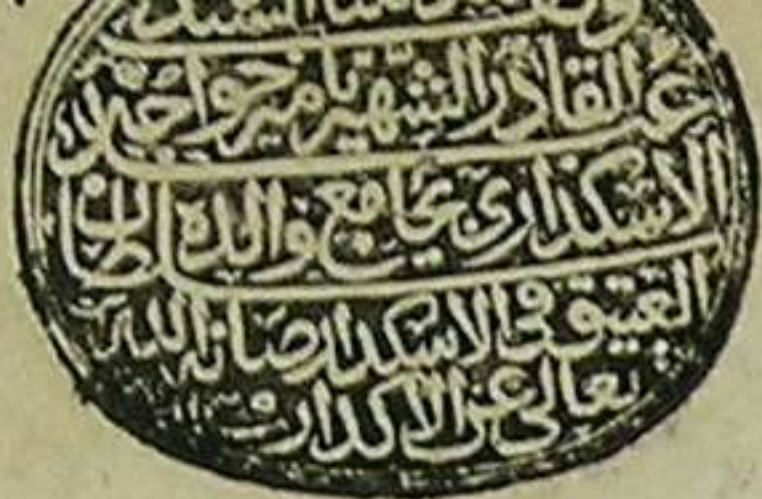 وقف السيد
عبد القادر الشهير بامير خواجه
الاسكداري بجامع والده سلطان
العتيق في الاسكدار صانه الله
تعالى عن الاكدار